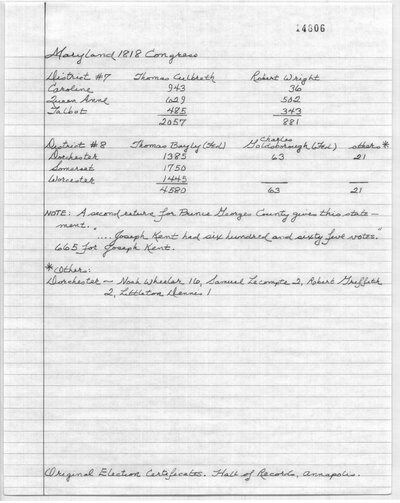 14806
Maryland 1818 Congress
District #7 Thomas Culbreth Robert Wright
Caroline 943 36
Queen Anne 629 502
Talbot 485 343
2057 881
District #8 Thomas Bayly (Fed) Charles Goldsborough (Fed) others *
Dorchester 1385 63 21
Somerset 1750
Worcester 1445
4580 63 21
NOTE: A second return for Prince Georges County gives this state-
ment. "
.... Joseph Kent had six hundred and sixty five votes."
665 for Joseph Kent.
* Other:
Dorchester - Noah Wheeler 16, Samuel Lecompte 2, Robert Griffith
2, Littleton Dennis 1
Original Election Certificates. Hall of Records, Annapolis.